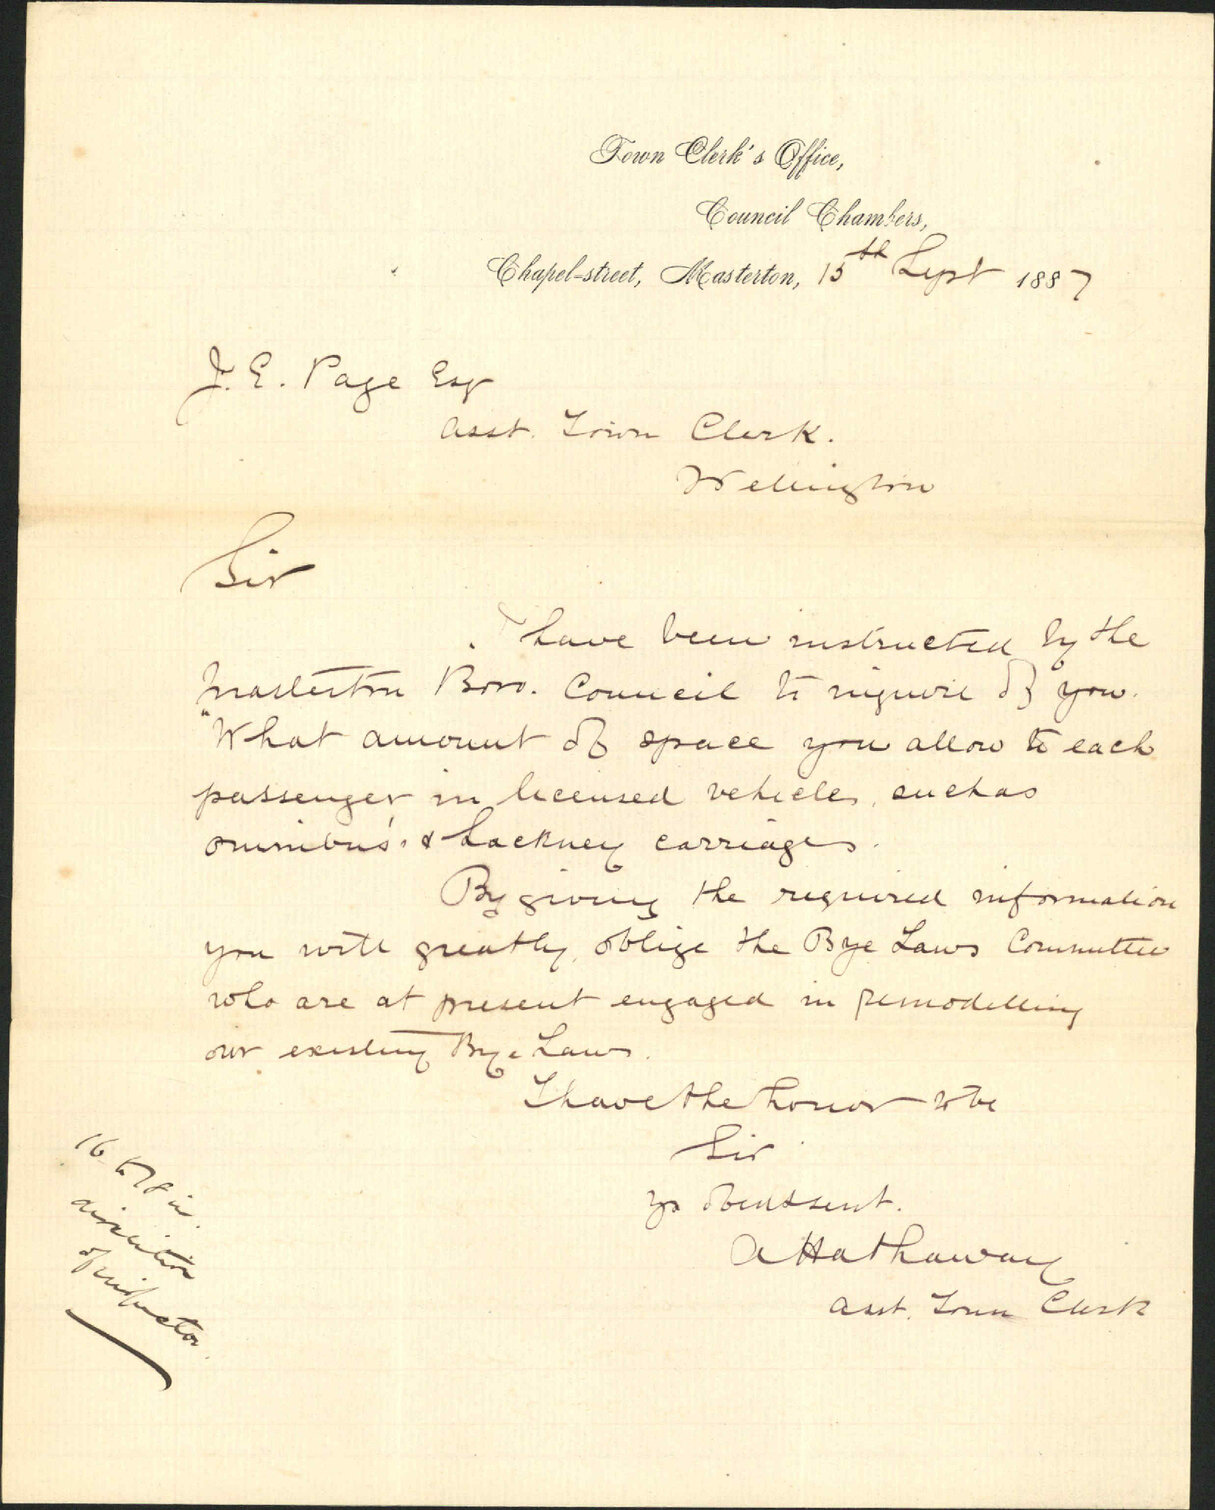 Town Clerk's Office,
Council Chambers,
Chapel-street, Masterton, 15th Sept 1887
J. E. Page Esqr
Asst. Town Clerk.
Wellington
Sir
I have been instructed by the
Masterton Boro. Council to inquire of you.
"What amount of space you allow to each
passenger in licensed vehicles, such as
omnibus's. & hackney carriages.
By giving the required information
you will greatly oblige the Bye Laws Committee
who are at present engaged in remodelling
our existing Bye Laws.
I have the honor to be
Sir
yr obedt servt.
A Hathaway
Asst. Town Clerk
16 to 18 in.
discretion
of inspector.